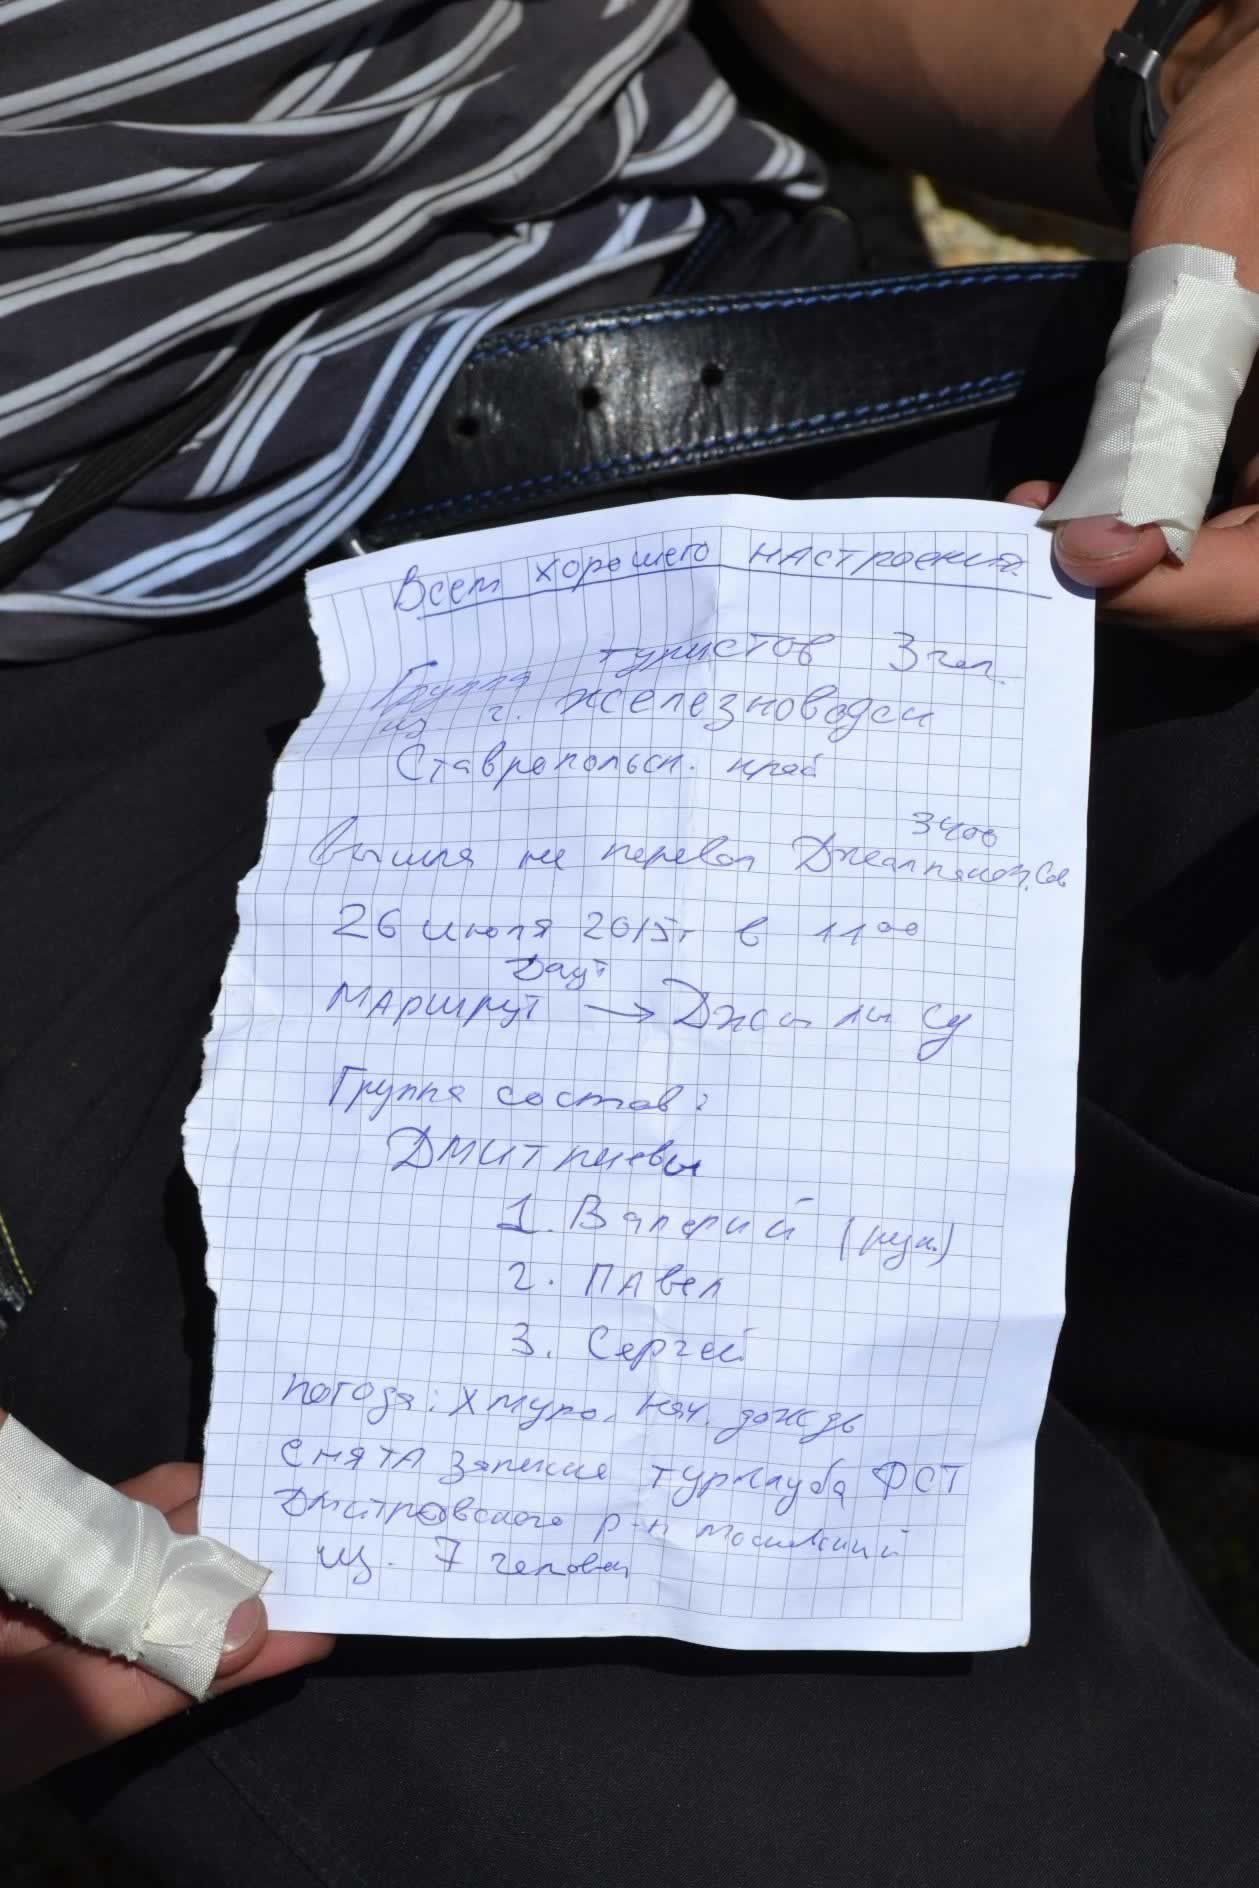 Всем хорошего настроения.
Группа туристов 3 чел.
из г. Железноводск
Ставропольск. край
3400
Вышла на перевал
26 июля 2015г в 11 00
Даут
Маршрут → Джылы су
Группа состав:
Дмитриевы
1. Валерий (рук.)
2. Павел
3. Сергей
погода: Хмуро, нач. дождь
снята записка турклуба ФСТ
Дмитровского р-н московский
из 7 человек